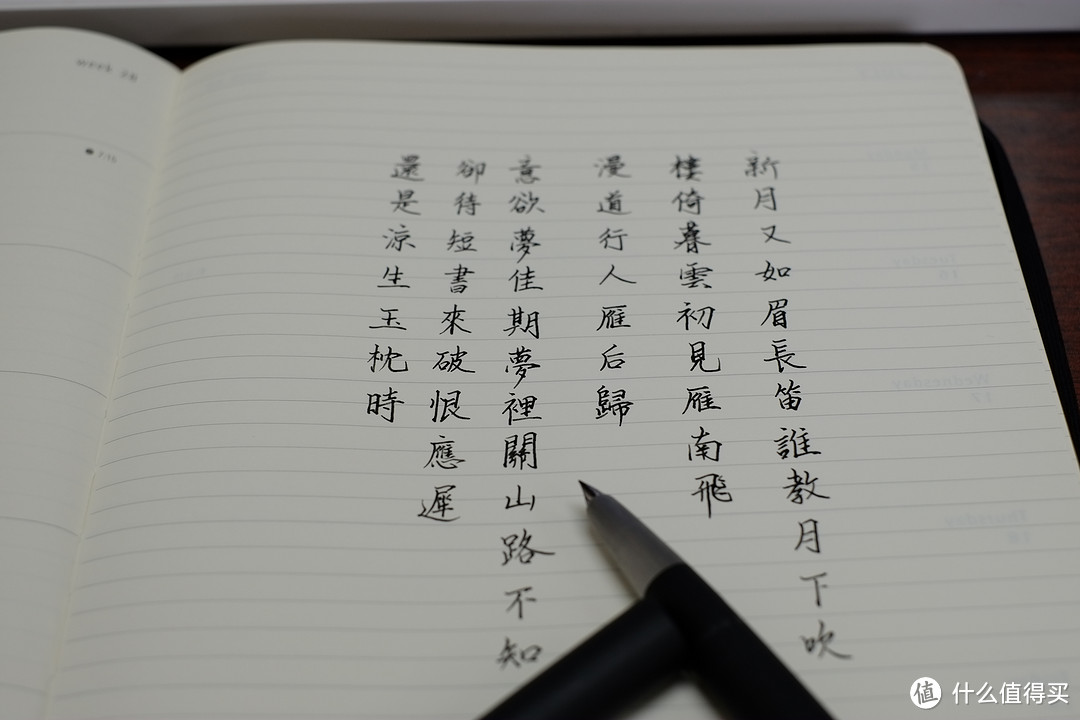 新月又如眉長笛誰教月下吹
樓倚暮雲初見雁南飛
漫道行人雁后歸
意欲夢佳期夢裡關山路不知
卻待短書來破恨應遲
還是涼生玉枕時
week 28
7/15
Tuesday
16
Wednesday
17
Thursday
18
值 什么值得买